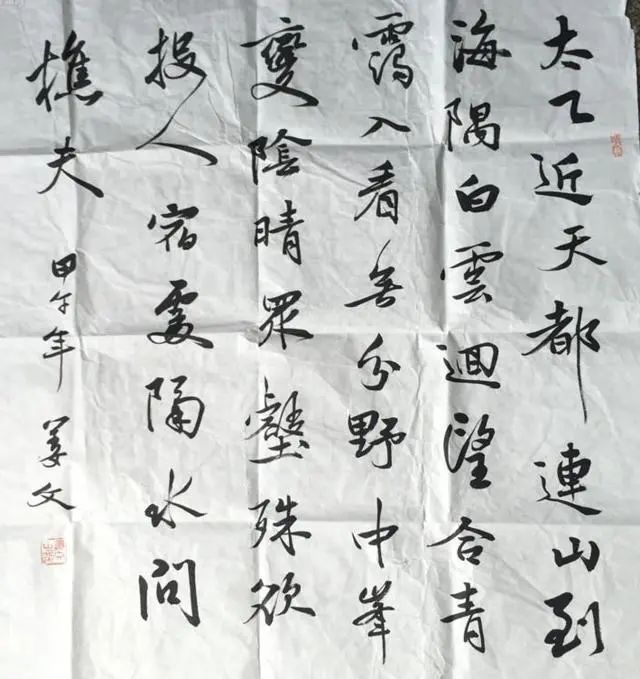 太乙近天都連山到
海隅白雲迴望合青
靄入看無分野中峯
變陰晴眾壑殊欲
投人宿處隔水問
樵夫 甲午年 姜文